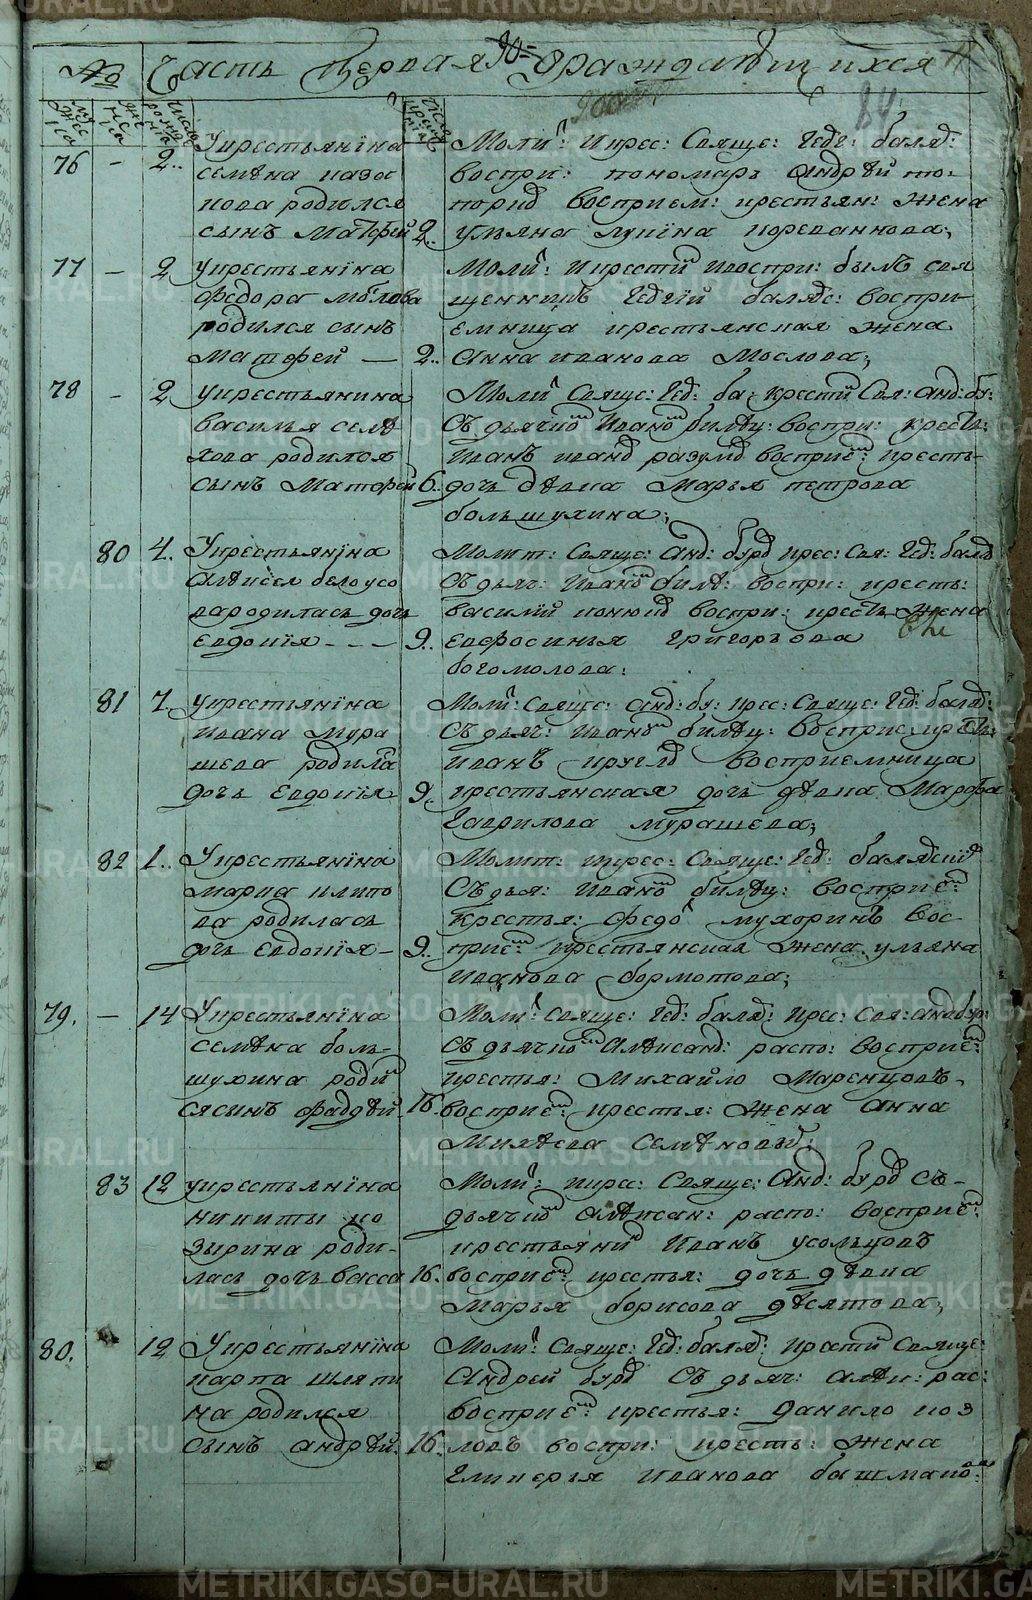 № Часть Первая ораждающихся
90
84
Число рождения
76 - 2.. У крестьянина
семена казо
нова родился
сынъ Матфей 2..
Моли: и крес: Свяще: Гедг: баляд:
воспри: пономарь андрей то:
порко восприем: крестьян: жена
ульяна лукина
77 - 2 у крестьянина
федора
родился сынъ
Матфей — 2..
Моли: и крести и воспри: былъ свя
щенникъ Гедгiй баляд: воспри-
емница крестьянская жена
Анна иванова Мослова;
78 - 2 у крестьянина
василья селе
хова родился
сынъ Матфей 6.
Моли Свяще: Гед: ба: крести Свя: Анд: бу:
съ дьячко Ивано билец: воспри: крест:
Иванъ ивано разумо восприе: кресть-
дочь девка Марья петрова
большухина;
80 4. У крестьянина
алексея белоусо
вародилась дочь
Евдокiя - - - 9.
Молит: Свяще: Анд: бурд крес: Свя: Гед: баляд
съ дьяч: Ивано биле: воспри: кресть:
василий воспри: кресть жена
Евфросинья григорьова
богомолова:
81 7. у крестьянина
ивана мура
шева родила
дочь Евдокiя 9.
Моли: Свяще: Анд: бу: крес: Свяще: Гед: баляд:
съ дьяч: Ивано билец: восприем: крест:
иванъ кругло восприемница
крестьянская дочь девка Марфа
Гаврилова мурашева;
82 1.. У крестьянина
марка клипо
ва родилась
дочь Евдокiя - 9..
Молит: и крес: Свяще: Гед: балядскiй
съ дья: Ивано билец: восприе:
Крестья: федо мухоринъ вос
прие: крестьянская жена ульяна
иванова бормотова;
79. — 14 У крестьянина
семена боль-
шухина роди
сясынъ фадей 16.
Моли: свяще: Гед: баляд: крес: Свя: анд бур:
съ дьячко александ: распо: восприе:
крестья: Михайло Маренцовъ.
восприе: крестья: жена Анна
Михеева семеновы
83 12 у крестьянина
никиты ко
зырина роди-
лась дочь васса 16.
Моли: и крес: Свяще: Анд: бурд съ-
дьячко алексан: распо: восприе:
крестьяни Иванъ усольцовъ
восприе: крестья: дочь девка
Марья борисова десятова;
80. 12 У крестьянина
карпа шляпи
на родился
сынъ андрей. 16.
Моли: Свяще: Гед: баляд: крести Свяще:
Андрей бурд съ дьяч: алек: рас:
восприе: крестья: данило коз
ловъ воспри: кресть: жена
Гликерья иванова башмако:
METRIKI.GASO-URAL.RU